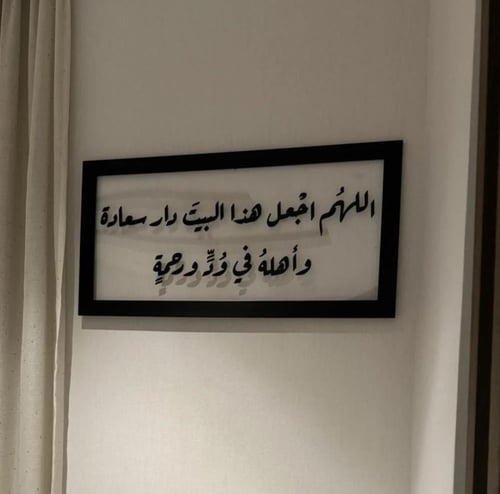 اللهُم اجْعل هذا البيتَ دار سعادة
وأهلهُ في وُدٍّ ورحمةٍ